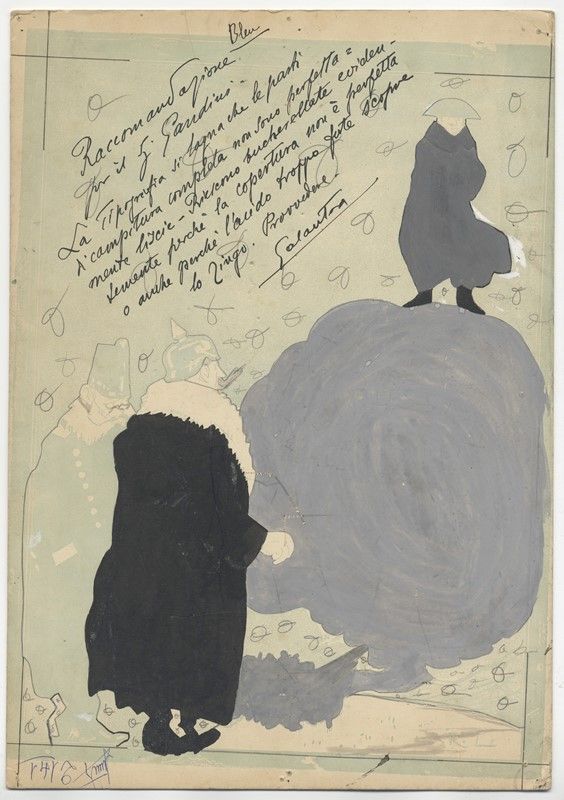 Bleu
Raccomandazione
per il S. Gandini -
La Tipografia si lagna che le parti
di campitura completa non sono perfetta=
mente liscie - Riescono bucherellate eviden-
temente perchè la copertura non è perfetta
o anche perchè l'acido troppo forte scopre
lo zingo. Provvedere -
Galantara